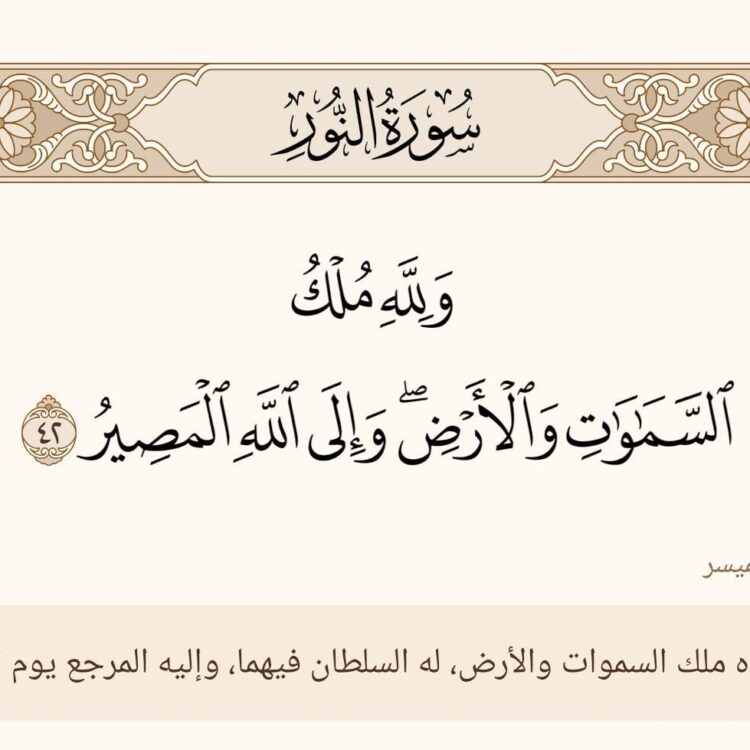 سُورَةُ النُّورِ
وَلِلَّهِ مُلۡكُ
ٱلسَّمَٰوَٰتِ وَٱلۡأَرۡضِۖ وَإِلَى ٱللَّهِ ٱلۡمَصِيرُ ٤٢
ملك السموات والأرض، له السلطان فيهما، وإليه المرجع يوم